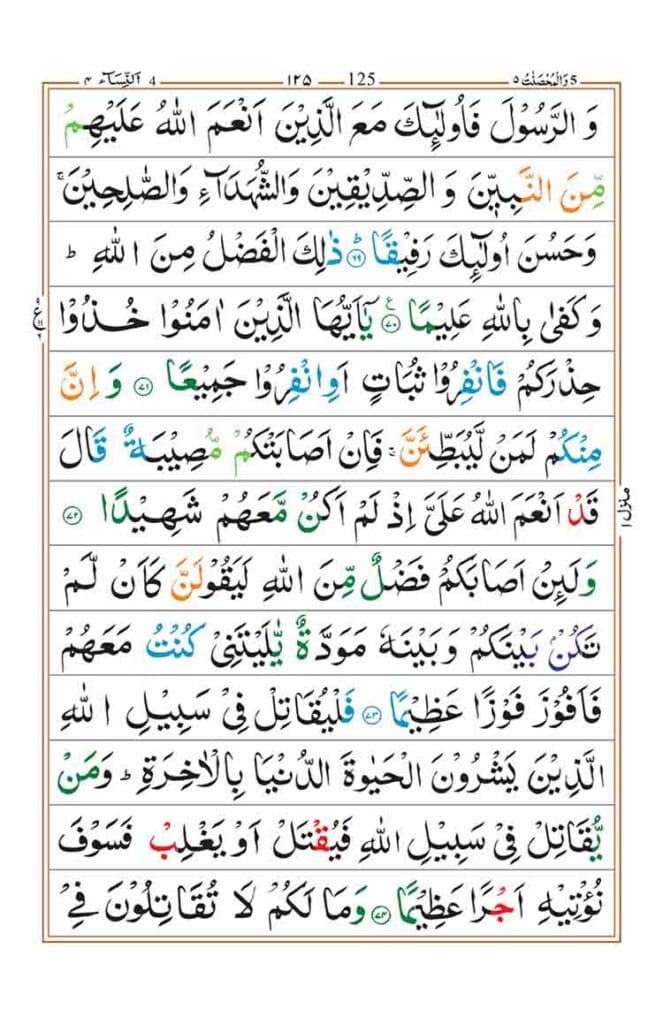 ۴ اَلنِّسَآء 4 ۱۲۵ 125 ۵ وَالْمُحْصَنٰتُ 5
وَ الرَّسُوْلَ فَاُولٰٓئِكَ مَعَ الَّذِيْنَ اَنْعَمَ اللّٰهُ عَلَيْهِمْ
مِّنَ النَّبِيّٖنَ وَ الصِّدِّيْقِيْنَ وَالشُّهَدَآءِ وَالصّٰلِحِيْنَ ۚ
وَحَسُنَ اُولٰٓئِكَ رَفِيْقًا ﴿۶۹﴾ ذٰلِكَ الْفَضْلُ مِنَ اللّٰهِ ؕ
وَكَفٰى بِاللّٰهِ عَلِيْمًا ﴿۷۰﴾ ع يٰۤاَيُّهَا الَّذِيْنَ اٰمَنُوْا خُذُوْا
حِذْرَكُمْ فَانْفِرُوْا ثُبَاتٍ اَوِانْفِرُوْا جَمِيْعًا ﴿۷۱﴾ وَ اِنَّ
مِنْكُمْ لَمَنْ لَّيُبَطِّئَنَّ ۚ فَاِنْ اَصَابَتْكُمْ مُّصِيْبَةٌ قَالَ
قَدْ اَنْعَمَ اللّٰهُ عَلَىَّ اِذْ لَمْ اَكُنْ مَّعَهُمْ شَهِيْدًا ﴿۷۲﴾
وَلَئِنْ اَصَابَكُمْ فَضْلٌ مِّنَ اللّٰهِ لَيَقُوْلَنَّ كَاَنْ لَّمْ
تَكُنْۢ بَيْنَكُمْ وَبَيْنَهٗ مَوَدَّةٌ يّٰلَيْتَنِىْ كُنْتُ مَعَهُمْ
فَاَفُوْزَ فَوْزًا عَظِيْمًا ﴿۷۳﴾ فَلْيُقَاتِلْ فِىْ سَبِيْلِ اللّٰهِ
الَّذِيْنَ يَشْرُوْنَ الْحَيٰوةَ الدُّنْيَا بِالْاٰخِرَةِ ؕ وَمَنْ
يُّقَاتِلْ فِىْ سَبِيْلِ اللّٰهِ فَيُقْتَلْ اَوْ يَغْلِبْ فَسَوْفَ
نُؤْتِيْهِ اَجْرًا عَظِيْمًا ﴿۷۴﴾ وَمَا لَكُمْ لَا تُقَاتِلُوْنَ فِىْ
منزل ۱